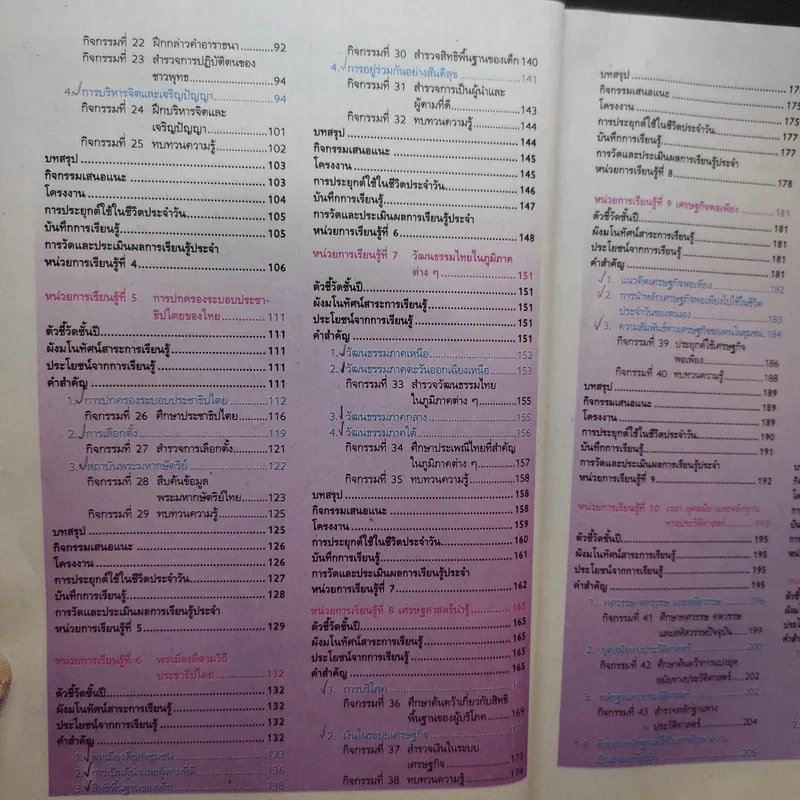 กิจกรรมที่ 22 ฝึกกล่าวคำอาราธนา..........92
กิจกรรมที่ 23 สำรวจการปฏิบัติตนของ
ชาวพุทธ....................94
4. การบริหารจิตและเจริญปัญญา....................94
กิจกรรมที่ 24 ฝึกบริหารจิตและ
เจริญปัญญา....................101
กิจกรรมที่ 25 ทบทวนความรู้....................102
บทสรุป....................103
กิจกรรมเสนอแนะ....................103
โครงงาน....................104
การประยุกต์ใช้ในชีวิตประจำวัน....................105
บันทึกการเรียนรู้....................105
การวัดและประเมินผลการเรียนรู้ประจำ
หน่วยการเรียนรู้ที่ 4....................106
หน่วยการเรียนรู้ที่ 5 การปกครองระบอบประชา-
ธิปไตยของไทย..........111
ตัวชี้วัดชั้นปี....................111
ผังมโนทัศน์สาระการเรียนรู้....................111
ประโยชน์จากการเรียนรู้....................111
คำสำคัญ....................111
1. การปกครองระบอบประชาธิปไตย..........112
กิจกรรมที่ 26 ศึกษาประชาธิปไตย..........116
2. การเลือกตั้ง....................119
กิจกรรมที่ 27 สำรวจการเลือกตั้ง..........121
3. สถาบันพระมหากษัตริย์....................122
กิจกรรมที่ 28 สืบค้นข้อมูล
พระมหากษัตริย์ไทย..........123
กิจกรรมที่ 29 ทบทวนความรู้....................125
บทสรุป....................125
กิจกรรมเสนอแนะ....................126
โครงงาน....................126
การประยุกต์ใช้ในชีวิตประจำวัน....................127
บันทึกการเรียนรู้....................128
การวัดและประเมินผลการเรียนรู้ประจำ
หน่วยการเรียนรู้ที่ 5....................129
หน่วยการเรียนรู้ที่ 6 พลเมืองดีตามวิถี
ประชาธิปไตย....................132
ตัวชี้วัดชั้นปี....................132
ผังมโนทัศน์สาระการเรียนรู้....................132
ประโยชน์จากการเรียนรู้....................132
คำสำคัญ....................132
1. พลเมืองดีของชุมชน....................133
2. การเป็นผู้นำและผู้ตามที่ดี....................136
3. สิทธิพื้นฐานของเด็ก....................138
กิจกรรมที่ 30 สำรวจสิทธิพื้นฐานของเด็ก 140
4. การอยู่ร่วมกันอย่างสันติสุข....................141
กิจกรรมที่ 31 สำรวจการเป็นผู้นำและ
ผู้ตามที่ดี....................143
กิจกรรมที่ 32 ทบทวนความรู้....................144
บทสรุป....................144
กิจกรรมเสนอแนะ....................145
โครงงาน....................145
การประยุกต์ใช้ในชีวิตประจำวัน....................146
บันทึกการเรียนรู้....................147
การวัดและประเมินผลการเรียนรู้ประจำ
หน่วยการเรียนรู้ที่ 6....................148
หน่วยการเรียนรู้ที่ 7 วัฒนธรรมไทยในภูมิภาค
ต่าง ๆ....................151
ตัวชี้วัดชั้นปี....................151
ผังมโนทัศน์สาระการเรียนรู้....................151
ประโยชน์จากการเรียนรู้....................151
คำสำคัญ....................151
1. วัฒนธรรมภาคเหนือ....................152
2. วัฒนธรรมภาคตะวันออกเฉียงเหนือ..........153
กิจกรรมที่ 33 สำรวจวัฒนธรรมไทย
ในภูมิภาคต่าง ๆ..........155
3. วัฒนธรรมภาคกลาง....................155
4. วัฒนธรรมภาคใต้....................156
กิจกรรมที่ 34 ศึกษาประเพณีไทยที่สำคัญ
ในภูมิภาคต่าง ๆ..........157
กิจกรรมที่ 35 ทบทวนความรู้....................158
บทสรุป....................158
กิจกรรมเสนอแนะ....................158
โครงงาน....................159
การประยุกต์ใช้ในชีวิตประจำวัน....................160
บันทึกการเรียนรู้....................161
การวัดและประเมินผลการเรียนรู้ประจำ
หน่วยการเรียนรู้ที่ 7....................162
หน่วยการเรียนรู้ที่ 8 เศรษฐศาสตร์น่ารู้..........165
ตัวชี้วัดชั้นปี....................165
ผังมโนทัศน์สาระการเรียนรู้....................165
ประโยชน์จากการเรียนรู้....................165
คำสำคัญ....................165
1. การบริโภค
กิจกรรมที่ 36 ศึกษาค้นคว้าเกี่ยวกับสิทธิ
พื้นฐานของผู้บริโภค..........169
2. เงินในระบบเศรษฐกิจ
กิจกรรมที่ 37 สำรวจเงินในระบบ
เศรษฐกิจ....................173
กิจกรรมที่ 38 ทบทวนความรู้....................174
บทสรุป....................
กิจกรรมเสนอแนะ....................175
โครงงาน....................175
การประยุกต์ใช้ในชีวิตประจำวัน....................177
บันทึกการเรียนรู้....................177
การวัดและประเมินผลการเรียนรู้ประจำ
หน่วยการเรียนรู้ที่ 8....................178
หน่วยการเรียนรู้ที่ 9 เศรษฐกิจพอเพียง..........181
ตัวชี้วัดชั้นปี....................181
ผังมโนทัศน์สาระการเรียนรู้....................181
ประโยชน์จากการเรียนรู้....................181
คำสำคัญ....................181
1. แนวคิดเศรษฐกิจพอเพียง....................182
2. การนำหลักเศรษฐกิจพอเพียงไปใช้ในชีวิต
ประจำวันของตนเอง....................183
3. ความสัมพันธ์ทางเศรษฐกิจของคนในชุมชน..184
กิจกรรมที่ 39 ประยุกต์ใช้เศรษฐกิจ
พอเพียง....................186
กิจกรรมที่ 40 ทบทวนความรู้....................188
บทสรุป....................189
กิจกรรมเสนอแนะ....................189
โครงงาน....................189
การประยุกต์ใช้ในชีวิตประจำวัน....................190
บันทึกการเรียนรู้....................191
การวัดและประเมินผลการเรียนรู้ประจำ
หน่วยการเรียนรู้ที่ 9....................192
หน่วยการเรียนรู้ที่ 10 เวลา ยุคสมัย และหลักฐาน
ทางประวัติศาสตร์..........195
ตัวชี้วัดชั้นปี....................195
ผังมโนทัศน์สาระการเรียนรู้....................195
ประโยชน์จากการเรียนรู้....................195
คำสำคัญ....................195
1. ทศวรรษ ศตวรรษ และสหัสวรรษ..........196
กิจกรรมที่ 41 ศึกษาทศวรรษ ศตวรรษ
และสหัสวรรษปัจจุบัน..........199
2. ยุคสมัยทางประวัติศาสตร์....................200
กิจกรรมที่ 42 ศึกษาค้นคว้าการแบ่งยุค
สมัยทางประวัติศาสตร์..........202
3. หลักฐานทางประวัติศาสตร์....................202
กิจกรรมที่ 43 สำรวจหลักฐานทาง
ประวัติศาสตร์....................204
205